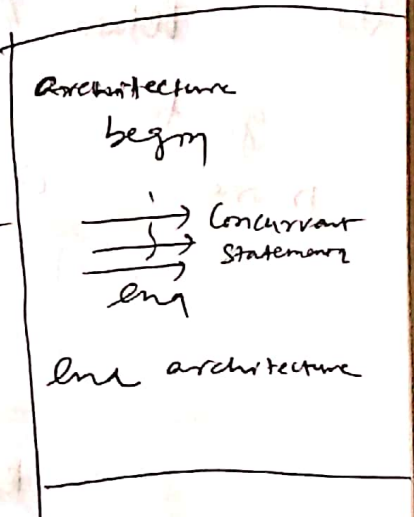 architecture
begin
Concurrent
statement
end
end architecture